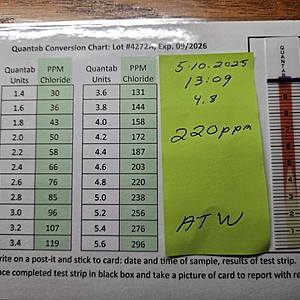 Quantab Conversion Chart: Lot #4272A, Exp. 09/2026
Quantab Units PPM Chloride Quantab Units PPM Chloride
1.4 30 3.6 131
1.6 36 3.8 144
1.8 43 4.0 158
2.0 50 4.2 172
2.2 58 4.4 187
2.4 66 4.6 203
2.6 76 4.8 220
2.8 85 5.0 238
3.0 96 5.2 256
3.2 107 5.4 276
3.4 119 5.6 296
5.10.2025
13:09
4.8
220ppm
ATW
QUANTAB
rite on a post-it and stick to card: date and time of sample, results of test strip.
ace completed test strip in black box and take a picture of card to report with re